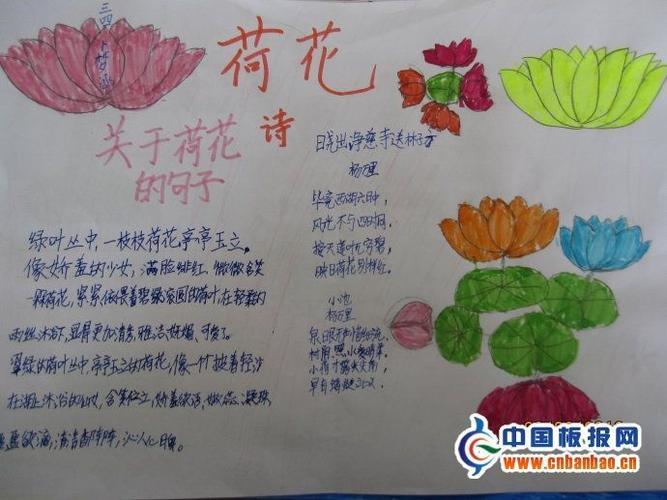 三四
荷花
诗
关于荷花
的句子
绿叶丛中，一枝枝荷花亭亭玉立。
像娇羞的少女，满脸绯红，微微含笑
一颗荷花，紧紧依偎着碧绿滚圆的荷叶，在轻柔的
雨丝沐浴下，显得更加清秀，雅洁，妩媚、可爱了。
翠绿的荷叶丛中，亭亭玉立的荷花，像一个披着轻沙
在湖上沐浴的仙女，含笑伫立，娇羞欲语，嫩蕊凝珠
盈盈欲滴，清香
晓出净慈寺送林子方
杨万里
毕竟西湖六月中，
风光不与四时同，
接天莲叶无穷碧，
映日荷花别样红。
小池
杨万里
泉眼无
小荷才露尖尖角，
早有蜻蜓立
中国板报网
www.cnbanbao.cn